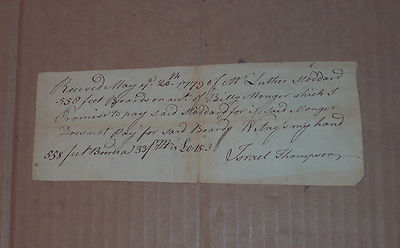 Received May ye 20th 1773 of Mr Luther Stoddard
558 feet Boards on acct of Billy Monger which I
Promise to pay said Stoddard for if said Monger
Does not pay for said Boards Witness my hand
558 feet Boards
Israel Thompson